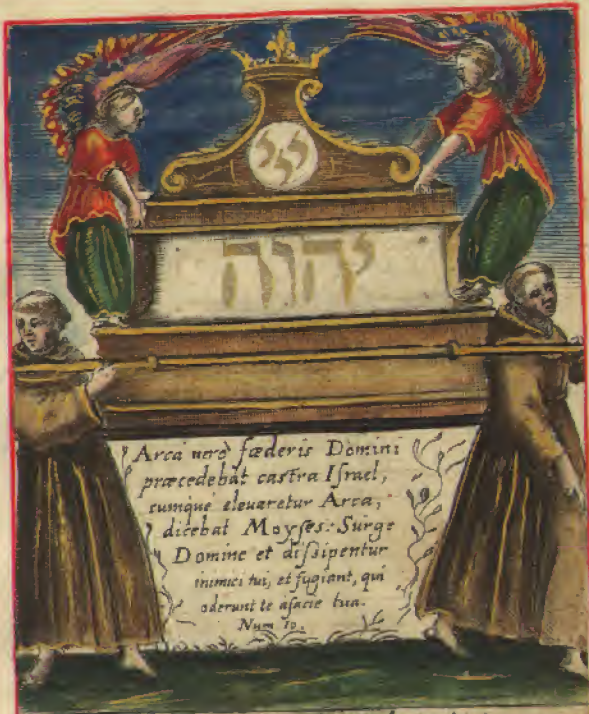 ייי
יהוה
Arca uerò fæderis Domini
præcedebat castra Iſrael,
cumque eleuaretur Arca,
dicebat Moyſes: Surge
Domine et diſsipentur
inimici tui, et fugiant, qui
oderunt te àfacie tua.
Num 10.